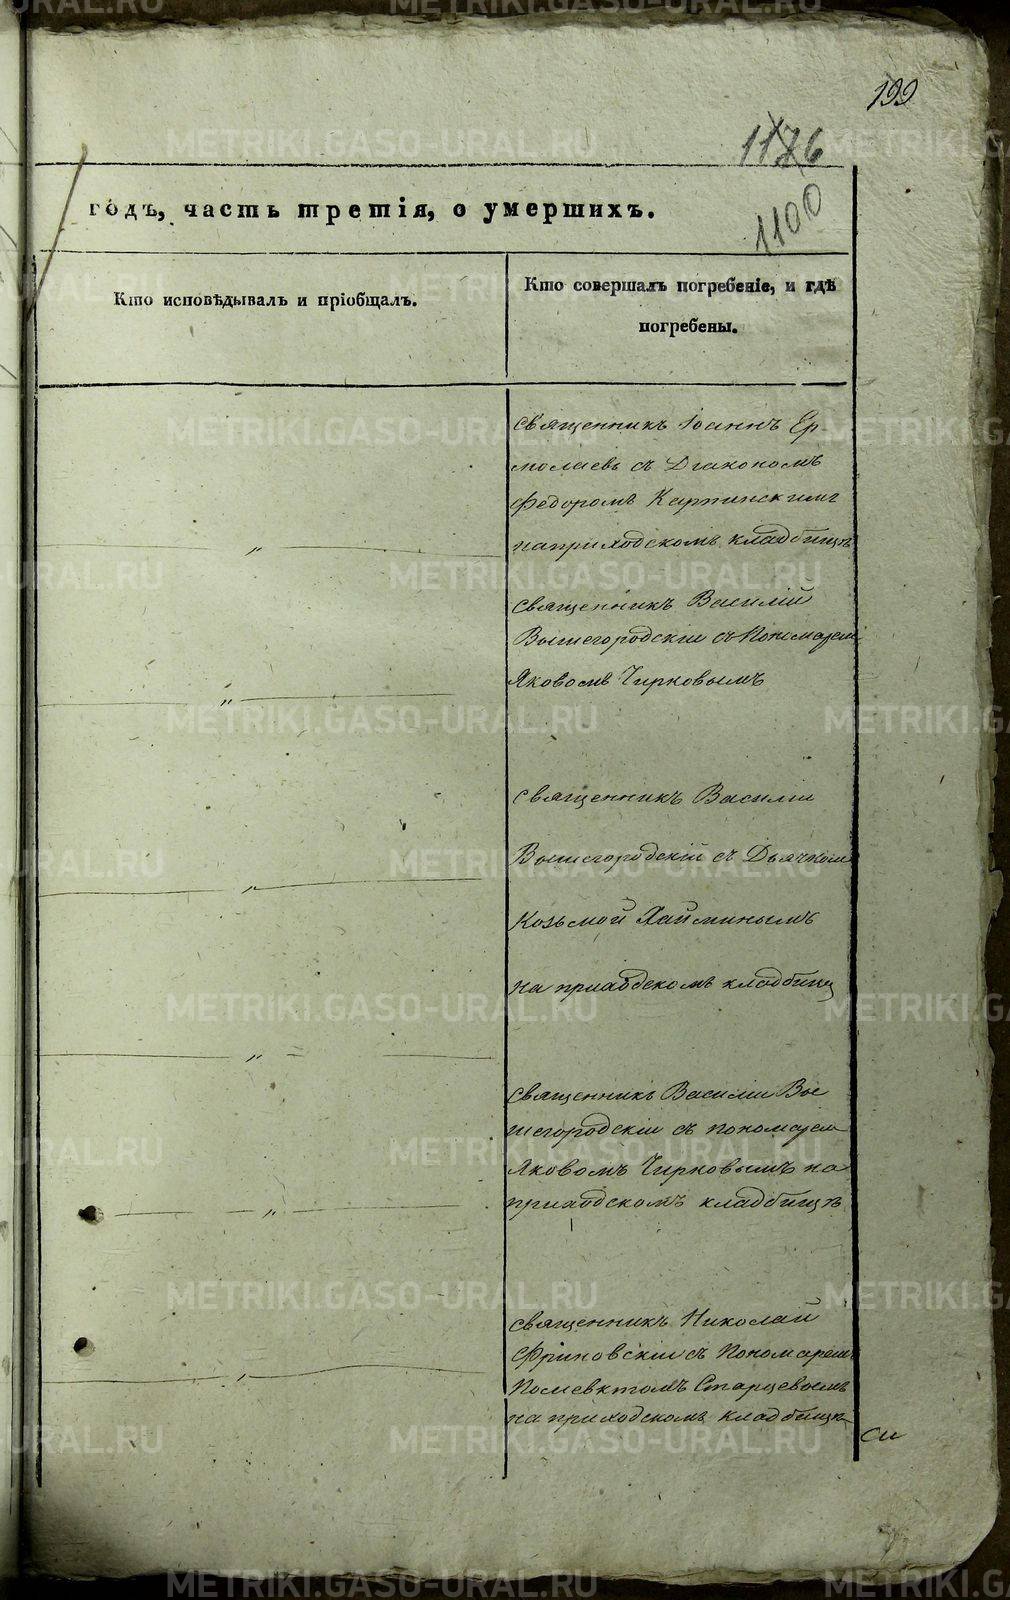 199
1176
1100
годъ, часть третія, о умершихъ.
Кто исповѣдывалъ и пріобщалъ.
Кто совершалъ погребеніе, и гдѣ
погребены.
Священникъ Іоаннъ Ер
молаевъ съ Діакономъ
Федоромъ Карпинскимъ
на приходскомъ кладбищѣ
Священникъ Василій
Вышегородскій съ Пономаремъ
Яковомъ Чирковымъ
Священникъ Василій
Вышегородскій съ Дьячкомъ
Козьмой Хайминымъ
на приходскомъ кладбищѣ
Священникъ Василій Вы
шегородскій съ пономаремъ
Яковомъ Чирковымъ на
приходскомъ кладбищѣ
Священникъ Николай
Фриновскій съ Пономаремъ
Полевктомъ Старцевымъ
на приходскомъ кладбищѣ
METRIKI.GASO-URAL.RU